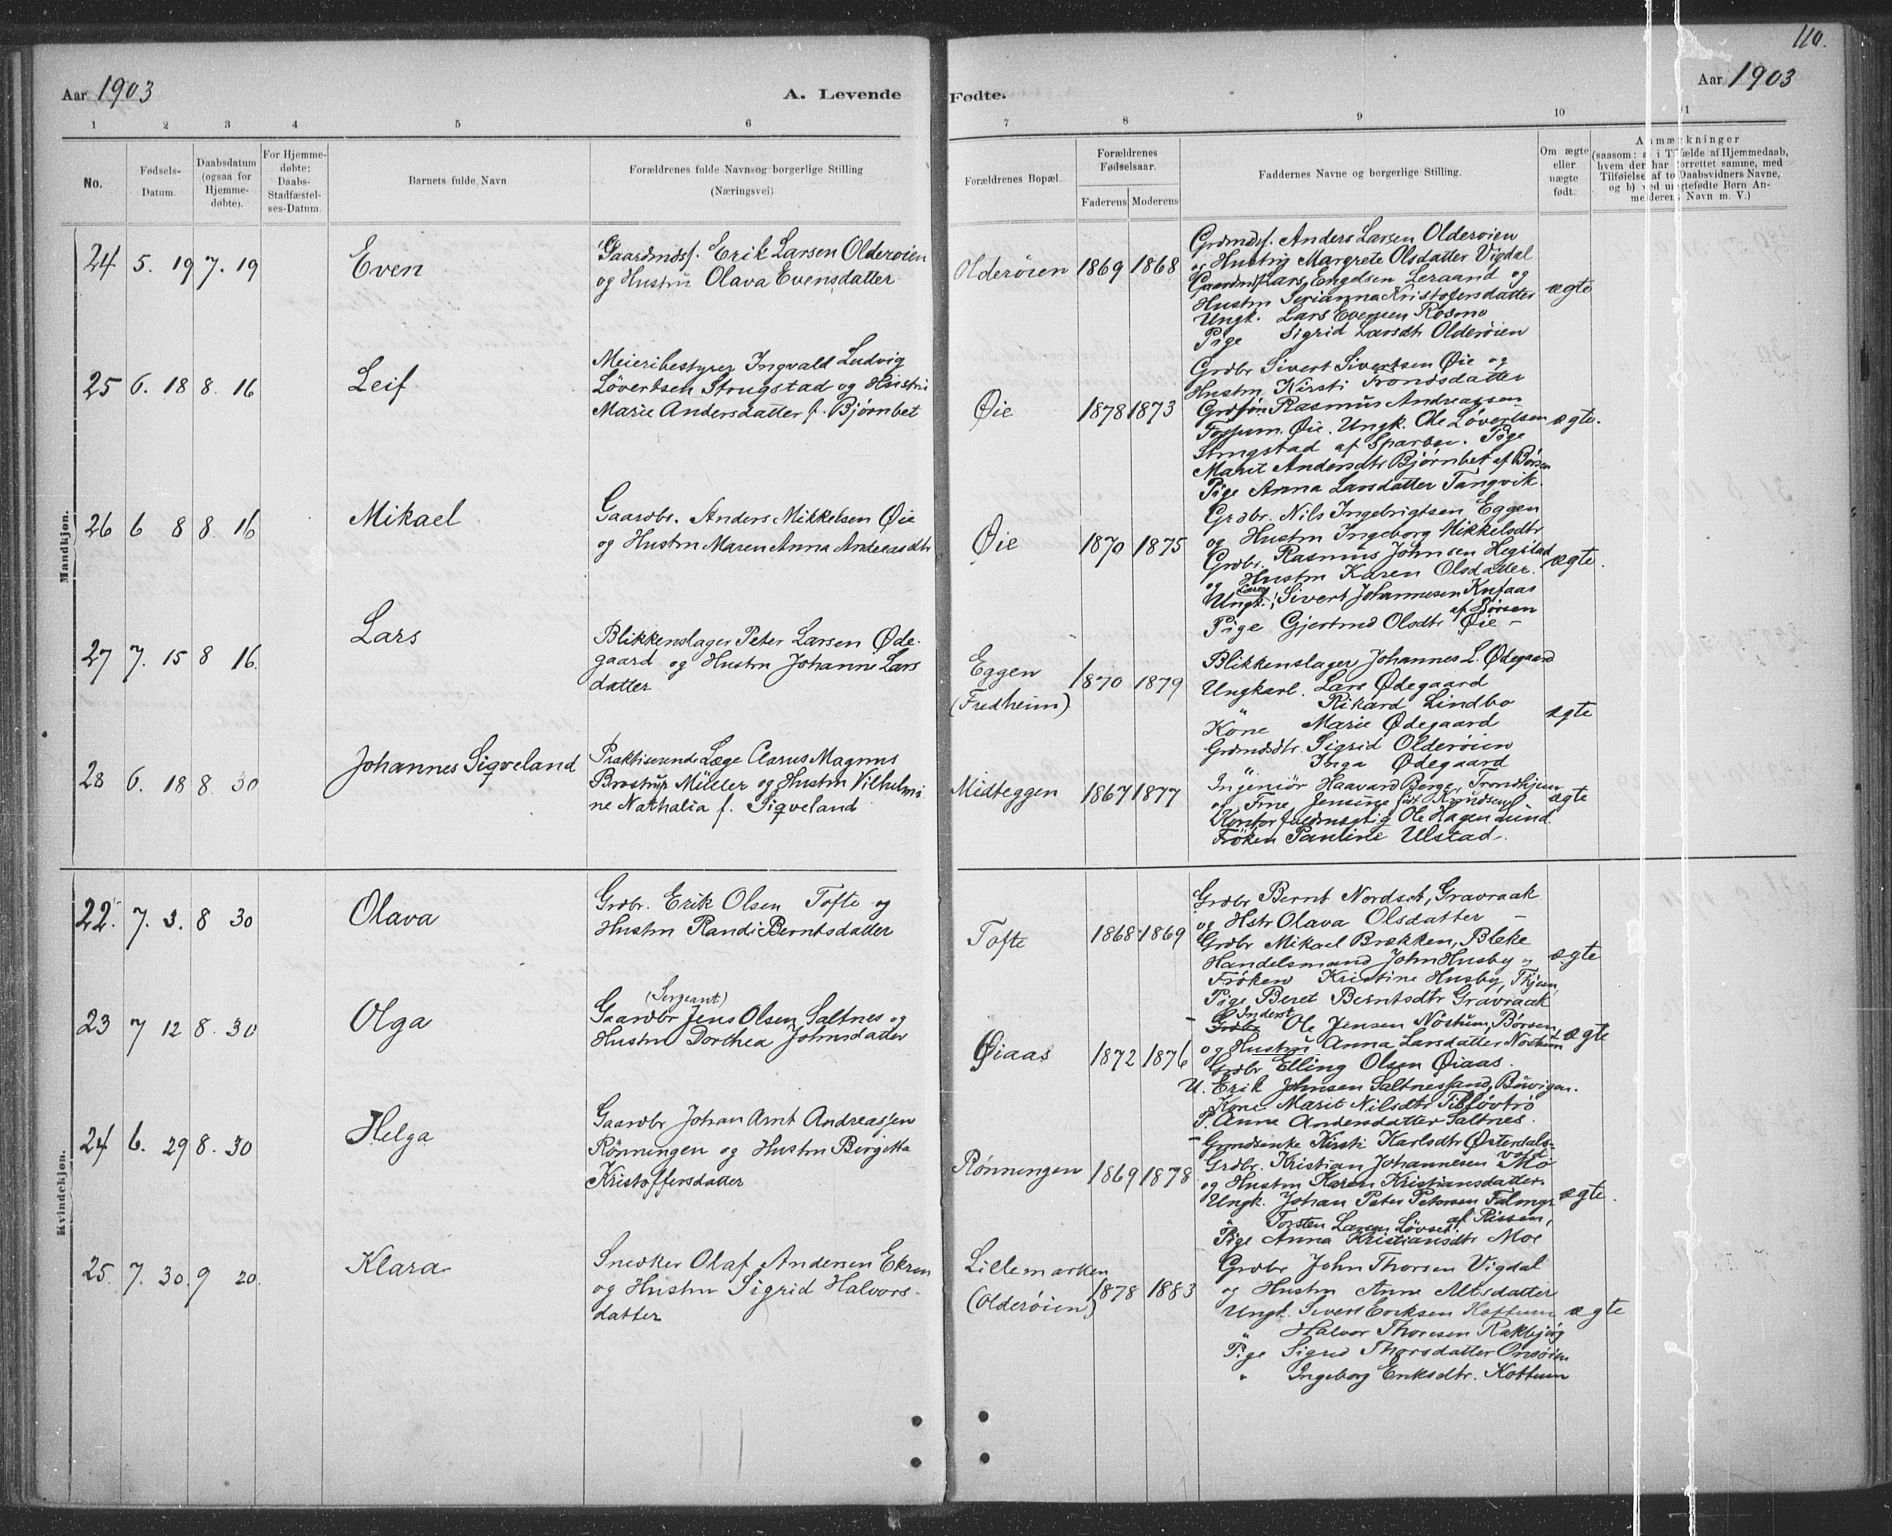 110.
Aar 1903
A. Levende
Fødte.
Aar 1903
1 2 3 4 5 6
7 8 9 10 11
No.
Fødsels-Datum.
Daabsdatum (ogsaa for Hjemme-døbte).
For Hjemme-døbte: Daabs-Stadfæstel-ses-Datum.
Barnets fulde Navn
Forældrenes fulde Navn og borgerlige Stilling (Næringsvei).
Forældrenes Bopæl.
Forældrenes Fødselsaar.
Faderens Moderens
Faddernes Navne og borgerlige Stilling.
Om ægte eller uægte født.
Anmærkninger
(saasom: a) i Tilfælde af Hjemmedaab,
hvem der har forrettet samme, med
Tilføielse af to Daabsvidners Navne,
og b) ved uægtefødte Børn An-
melderens Navn m. V.)
Mandkjøn.
24 5. 19 7. 19
Even
Gaardmdsf. Erik Larsen Olderøien
og Hustru Olava Evensdatter
Olderøien 1869 1868
Grdmdsf. Anders Larsen Olderøien
og Hustru Margrete Olsdatter Vigdal
Gaardmd Lars Engelsen Leraand og
Hustru Serianna Kristofersdatter
Ungk. Lars Evensen Rosmo
Pige Sigrid Larsdtr Olderøien
ægte
25 6. 18 8. 16
Leif
Meieribestyrer Ingvald Ludvig
Løvertsen Strugstad og Hustru
Marie Andersdatter f. Bjørnbet
Øie 1878 1873
Grdbr Sivert Sivertsen Øie og
Hustru Kirsti Trondsdatter
Grdsøn Rasmus Andreassen
Øie. Ungk. Ole Løvertsen
Strugstad af Sparbu. Pige
Marit Andersdtr Bjørnbet af Børsen
Pige Anna Larsdatter Tangvik.
ægte.
26 6 8 8 16
Mikael
Gaardbr. Anders Mikkelsen Øie
og Hustru Maren Anna Andreasdtr
Øie 1870 1875
Grdbr. Nils Ingebrigtsen Eggen
og Hustru Ingeborg Mikkelsdtr
Grdbr. Rasmus Johnsen Hegstad
og Hustru Karen Olsdatter
Ungk. Sivert Johannesen Knfaas
af Børsen
Pige Gjertrud Olsdtr Øie –
ægte.
27 7. 15 8 16.
Lars
Blikkenslager Peter Larsen Øde-
gaard og Hustru Johanne Lars
datter
Eggen
(Fredheim)
1870 1879
Blikkenslager Johannes L. Ødegaard
Ungkarl. Lars Ødegaard
Rikard Lindbo
Kone Marie Ødegaard
Sigrid Olderøien
Inga Ødegaard
ægte
28 6. 18 8. 30
Johannes Siqveland
Praktiserende Læge Clarus Magnus
Brostrup Müller og Hustru Vilhelmi
ne Nathalia f. Siqveland
Midteggen 1867 1877
Ingeniør Haavard Berge, Trondhjem
og Frue Jensine født Knudsen
Kontorfuldmægtig Ole Hagen Lund
Frøken Pauline Ulstad.
ægte
Kvindekjøn.
22. 7. 3. 8 30
Olava
Grdbr. Erik Olsen Tofte og
Hustru Randi Berntsdatter
Tofte 1868 1869
Grdbr Bernt Nordset, Gravraak
og Hstr Olava Olsdatter –
Grdbr Mikael Brækken, Bleke
Handelsmand John Husby og
Frøken Kristine Husby, Thjem
Pige Beret Berntsdtr Gravraak
ægte
23 7 12 8. 30
Olga
(Sergeant)
Gaardbr Jens Olsen Saltnes og
Hustru Dorthea Johnsdatter
Øiaas 1872 1876
Inderst
Grdbr Ole Jensen Nostum, Børsen,
og Hustru Anna Larsdatter Nostum
Grdbr Elling Olsen Øiaas.
U. Erik Johnsen Saltnessand, Buvigen.
Kone Marit Nilsdtr
P. Anne Andersdatter Saltnes.
ægte
24 6. 29 8. 30
Helga
Gaardbr Johan Arnt Andreassen
Rönningen og Hustru Birgitta
Kristoffersdatter
Rönningen 1869 1878
Grdmdsenke Kirsti Karlsdtr Østerdals-
vold
Grdbr. Kristian Johannesen Mo
og Hustru Karen Kristiansdatter
Ungk. Johan Peter Petersen
af Rissen,
" Torsten Larsen Løvset
Pige Anna Kristiansdtr Moe
ægte.
25. 7. 30. 9 20.
Klara
Snedker Olaf Andersen Ekren
og Hustru Sigrid Halvors-
datter
Lillemarken
(Olderøien)
1878 1883
Grdbr John Thorsen Vigdal
og Hustru Anne Altsdatter
Ungk. Sivert Eriksen Kottum
" Halvor Thoresen Rakbjørg
Pige Sigrid Thorsdatter Onsøien
" Ingeborg Eriksdtr. Kottum
ægte